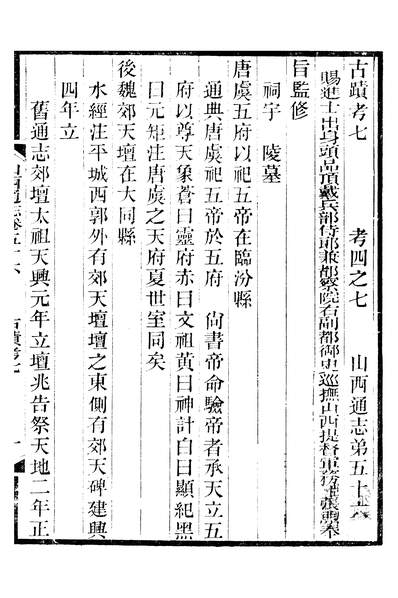 古蹟考七　考四之七　山西通志第五十六
賜進士出身頭品頂戴兵部侍郎兼都察院右副都御史巡撫山西提督軍務張煦奉
旨監修
祠宇　陵墓
唐虞五府以祀五帝在臨汾縣
通典唐虞祀五帝於五府　尙書帝命驗帝者承天立五
府以尊天象蒼曰靈府赤曰文祖黃曰神計白曰顯紀黑
曰元矩注唐虞之天府夏世室同矣
後魏郊天壇在大同縣
水經注平城西郭外有郊天壇壇之東側有郊天碑建興
四年立
舊通志郊壇太祖天興元年立壇兆告祭天地二年正